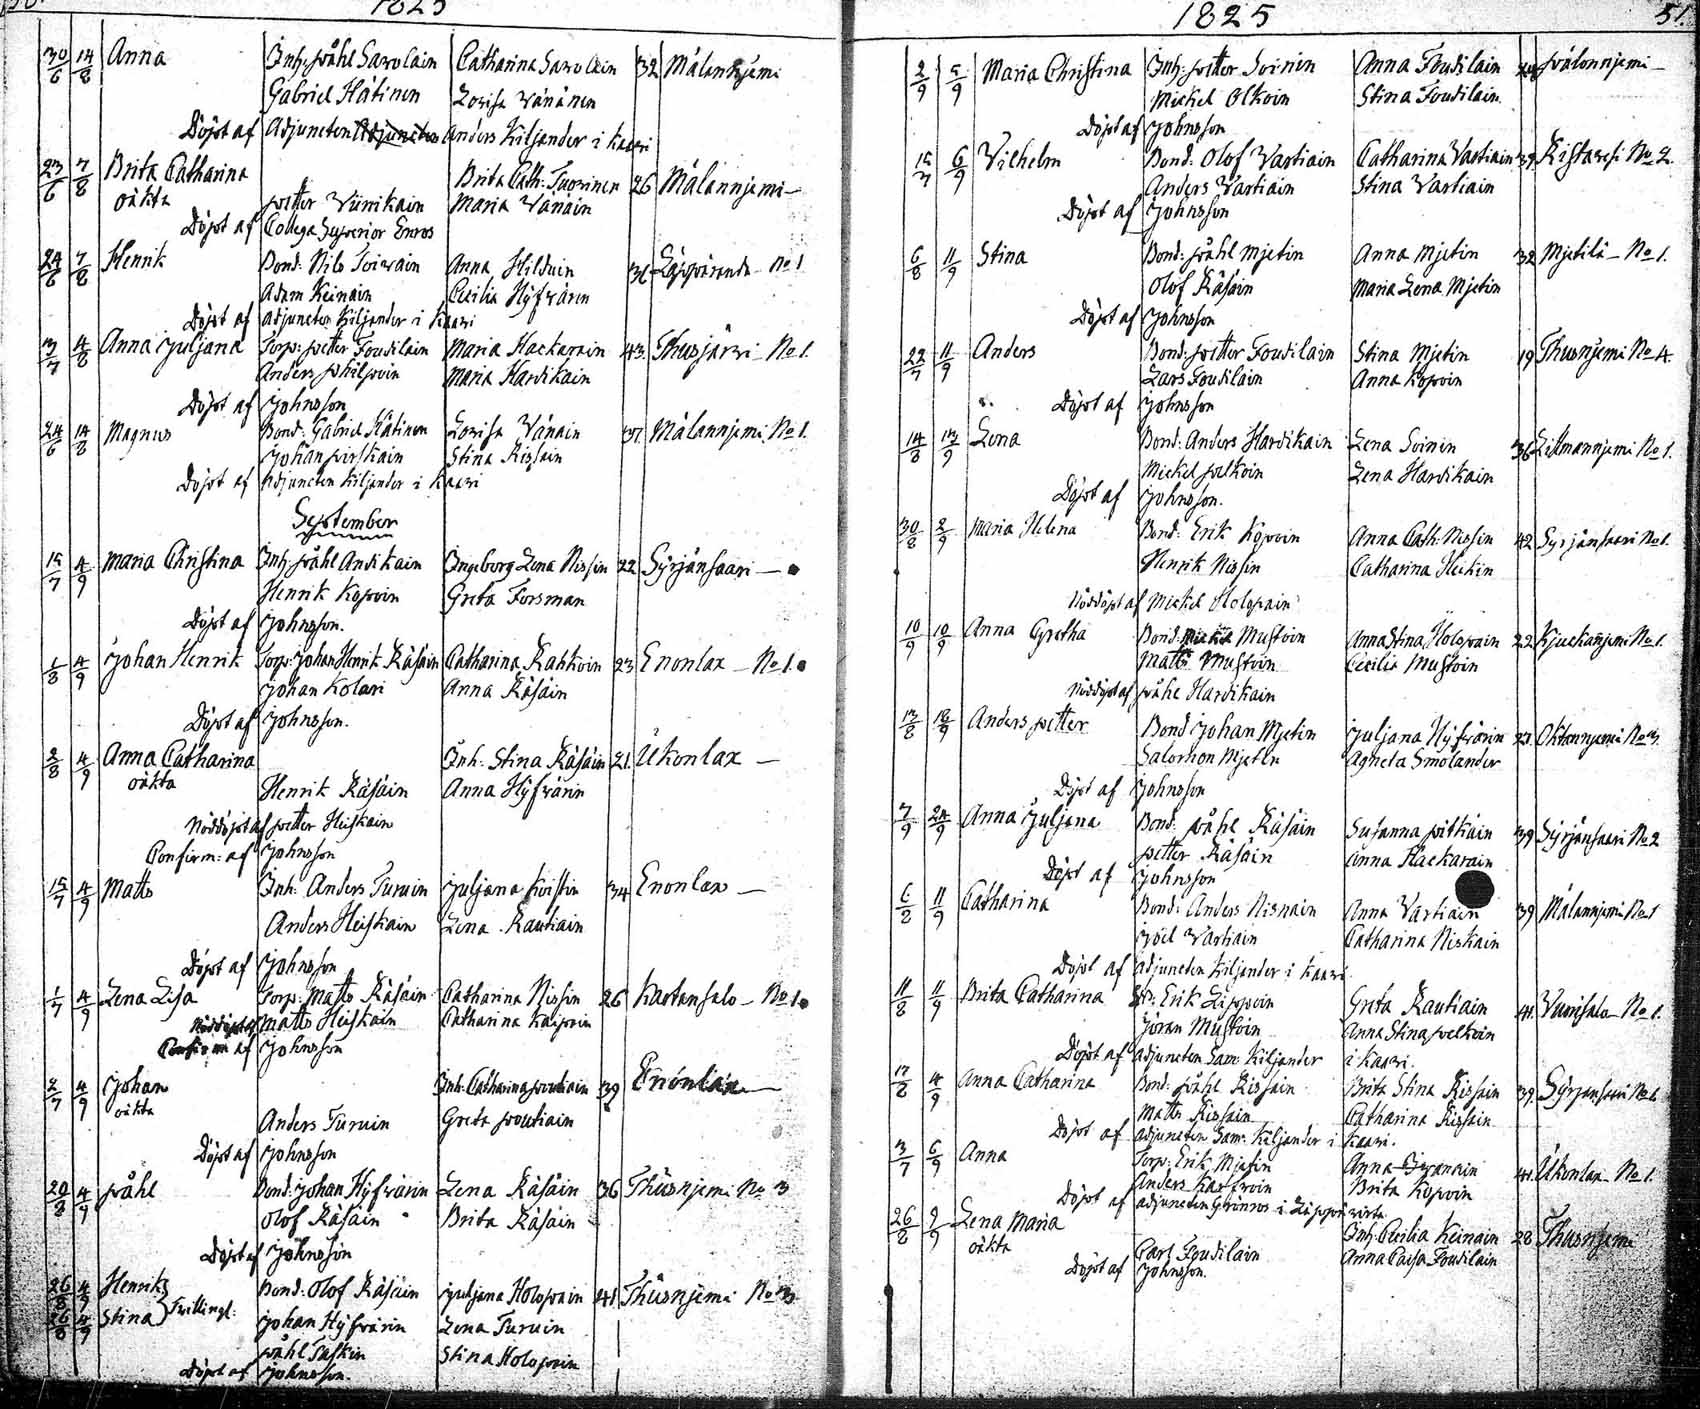 1825
30/6 14/8 Anna Inh: Påhl Savolain Catharina Savolain 32 Målannjemi
Gabriel Hätinen Lovisa Vänänen
Döpt af Adjuncten Anders Kiljander i Kaavi
23/6 7/8 Brita Catharina Brita Cath: Tuovinen 26 Målannjemi
oäkta Petter Viinikain Maria Vänäin
Döpt af Collega Superior Enros
24/6 7/8 Henrik Bond: Nils Toivain Anna Hilduin 36 Läppäranda No 1
Adam Keinäin Cecilia Hyfvärin
Döpt af Adjuncten Kiljander i Kaavi
3/7 4/8 Anna Juljana Torp: Petter Foudilain Maria Hackarain 43 Thusjärvi No 1.
Anders Philpoin Maria Hardikain
Döpt af Johnsson
24/6 14/8 Magnus Bond: Gabriel Hätinen Lovisa Vänäin 37 Målannjemi No 1.
Johan Pirskain Stina Rissäin
Döpt af Adjuncten Kiljander i Kaavi
September
15/7 4/9 Maria Christina Inh: Påhl Andikain Ingeborg Lena Nissin 22 Syrjänsaari
Henrik Kopoin Greta Forsman
Döpt af Johnsson.
1/8 4/9 Johan Henrik Torp: Johan Henrik Räsäin Catharina Kakkoin 23 Enonlax No 1.
Johan Kolari Anna Räsäin
Döpt af Johnsson.
2/8 4/9 Anna Catharina Inh: Stina Räsäin 21 Ukonlax
oäkta Henrik Räsäin Anna Hyfvärin
Nöddöpt af Petter Heiskain
Confirm: af Johnsson
15/7 4/9 Matts Inh: Anders Turuin Juljana Koistin 34 Enonlax
Anders Heiskain Lena Rautiain
Döpt af Johnsson
1/7 4/9 Lena Lisa Torp: Matts Räsäin Catharina Nissin 26 Kartansalo No 1
Nöddöpt af Matts Heiskain Catharina Kaipoin
Confirm af Johnsson
2/7 4/9 Johan Inh: Catharina Poutiain 39 Enonlax
oäkta Anders Turuin Greta Poutiain
Döpt af Johnsson
20/8 4/9 Påhl Bond: Johan Hyfvärin Lena Räsäin 36 Thusnjemi No 3
Olof Räsäin Brita Räsäin
Döpt af Johnsson
26/8 4/9 Henrik Bond: Olof Räsäin Juljana Holopain 41 Thusnjemi No 3
26/8 4/9 Stina Tvillingl: Johan Hyfvärin Lena Turuin
Påhl Taskin Stina Holopain
Döpt af Johnsson.
1825 51.
2/9 5/9 Maria Christina Inh: Petter Soinin Anna Foudilain Målonnjemi
Mickel Olkoin Stina Foudilain
Döpt af Johnsson
15/7 6/9 Vilhelm Bond: Olof Vartiain Catharina Vartiain 39 Ristavesi No 2.
Anders Vartiain Stina Vartiain
Döpt af Johnsson
6/8 11/9 Stina Bond: Påhl Mjetin Anna Mjetin 32 Mjetilä No 1.
Olof Räsäin Maria Lena Mjetin
Döpt af Johnsson
22/7 11/9 Anders Bond: Petter Foudilain Stina Mjetin 19 Thusnjemi No 4.
Lars Foudilain Anna Kopoin
Döpt af Johnsson
14/8 13/9 Lena Bond: Anders Hardikain Lena Soinin 36 Litmannjemi No 1.
Mickel Pelkoin Lena Hardikain
Döpt af Johnsson.
30/8 2/9 Maria Helena Bond: Erik Kopoin Anna Cath: Nissin 42 Syrjänsaari No 1.
Henrik Nissin Catharina Heikin
Nöddöpt af Mickel Holopain
10/9 10/9 Anna Gretha Bond: Mickel Mustoin Anna Stina Holopain 22 Kjuckanjemi No 1.
Matts Mustoin Cecilia Mustoin
Nöddöpt af Påhl Hardikain
13/8 18/9 Anders Petter Bond Johan Mjetin Juljana Hyfvärin 23 Oktannjemi No 3.
Salomon Mjetin Agneta Smolander
Döpt af Johnsson
7/9 24/9 Anna Juljana Bond: Påhl Räsäin Susanna Pitkäin 39 Syrjänsaari No 2
Petter Räsäin Anna Hackarain
Döpt af Johnsson
6/8 11/9 Catharina Bond: Anders Niskain Anna Vartiain 39 Målannjemi No 1
Joel Vartiain Catharina Niskain
Döpt af Adjuncten Kiljander i Kaavi
11/8 11/9 Brita Catharina Erik Lippoin Greta Rautiain 41 Vuorisalo No 1.
Jöran Mustoin Anna Stina Pelkoin
Döpt af Adjuncten Sam: Kiljander i Kaavi.
17/8 4/9 Anna Catharina Bond: Påhl Rissain Brita Stina Rissain 39 Syrjänsaari No 6
Matts Rissain Catharina Rissain
Döpt af Adjuncten Sam: Kiljander i Kaavi.
3/7 6/9 Anna Torp: Erik Mjetin Anna 41 Ukonlax No 1.
Anders Brita Kopoin
Döpt af Adjuncten Grönros i Läppävirta
26/8 9/9 Lena Maria Inh: Cecilia Keinäin 28 Thusnjemi
oäkta Carl Foudilain Anna Caisa Foudilain
Döpt af Johnsson.